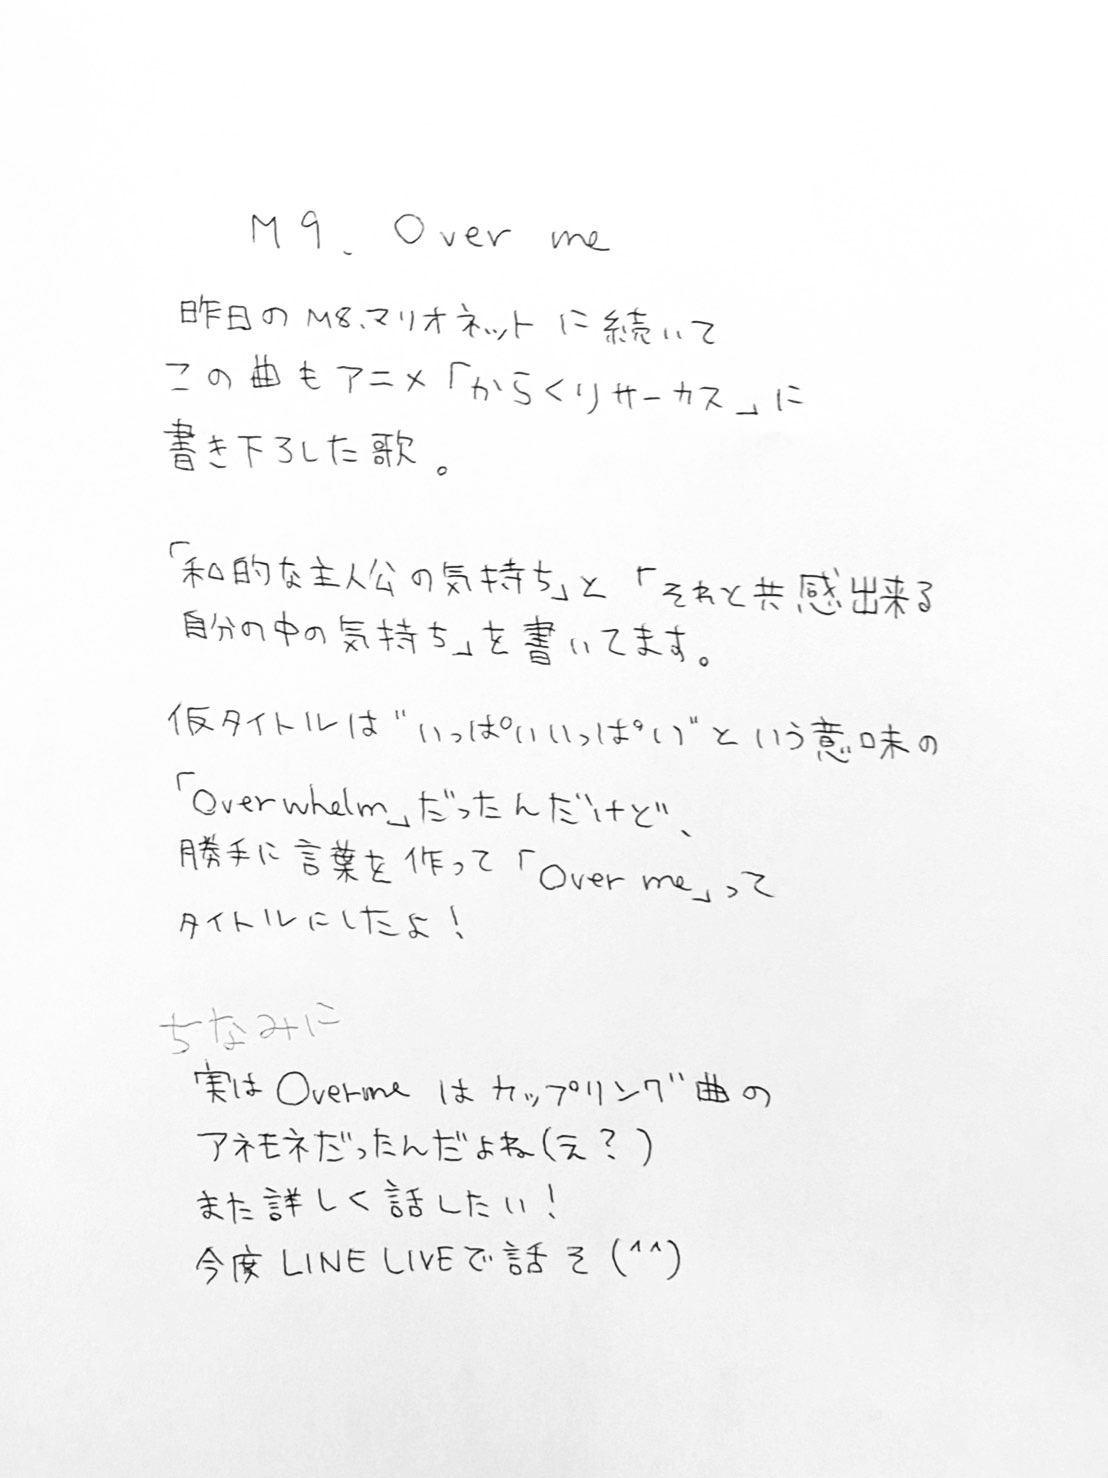 M9. Over me
昨日のM8.マリオネットに続いて
この曲もアニメ「からくりサーカス」に
書き下ろした歌。
「私的な主人公の気持ち」と「それと共感出来る
自分の中の気持ち」を書いてます。
仮タイトルは"いっぱいいっぱい"という意味の
「Overwhelm」だったんだけど、
勝手に言葉を作って「Over me」って
タイトルにしたよ!
ちなみに
実はOvermeはカップリング曲の
アネモネだったんだよね(え?)
また詳しく話したい!
今度LINE LIVEで話そ(^^)